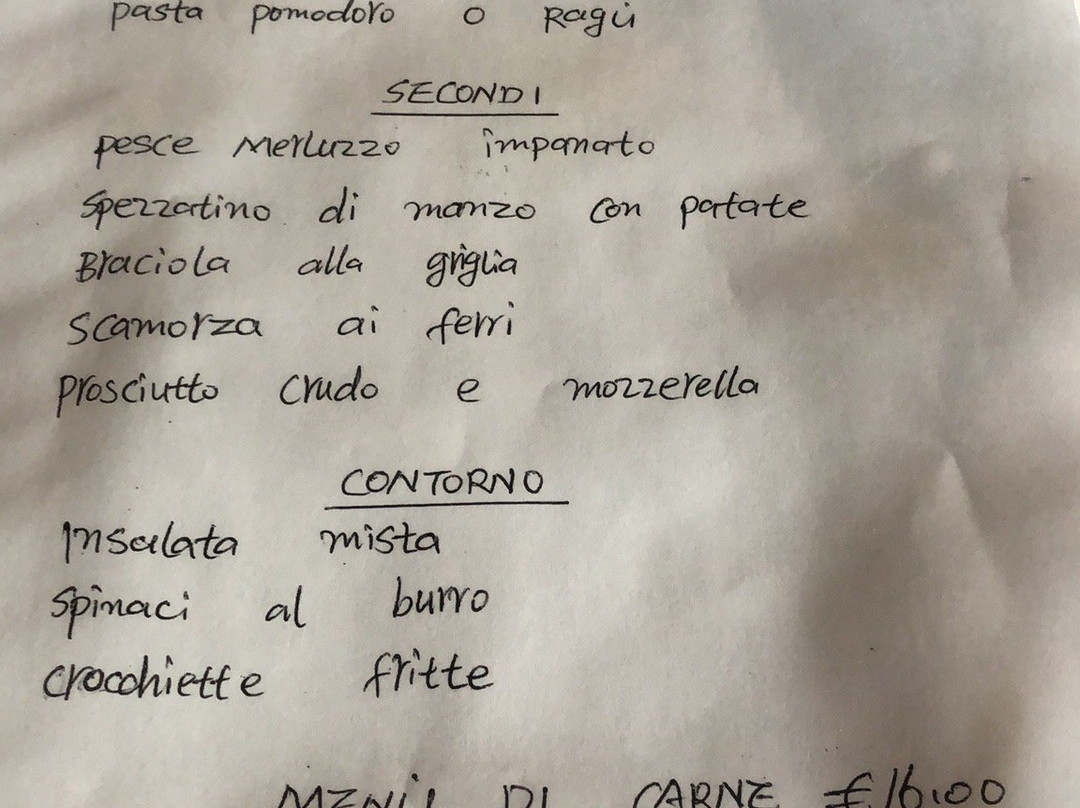 pasta pomodoro o Ragù
SECONDI
pesce Merluzzo impanato
Spezzatino di manzo con patate
Braciola alla griglia
Scamorza ai ferri
Prosciutto Crudo e mozzerella
CONTORNO
Insalata mista
Spinaci al burro
Crocchiette fritte
MENÙ DI CARNE €16.00